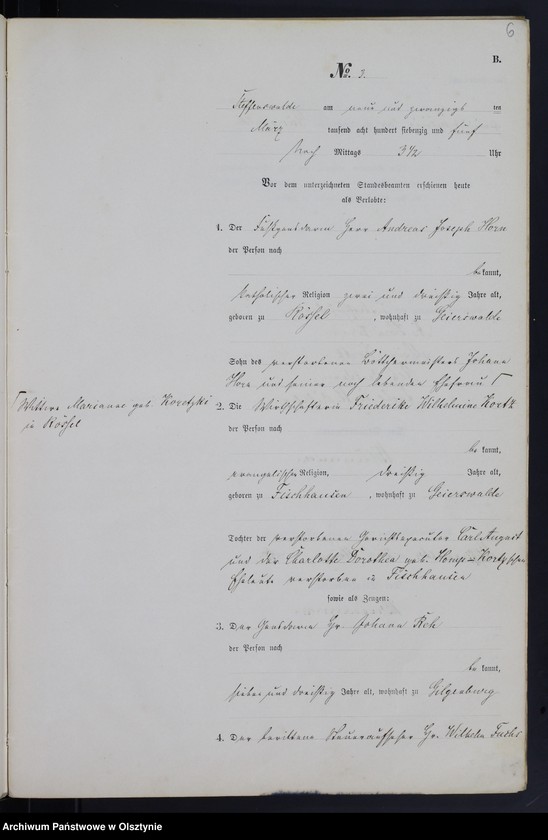 6
B.
No. 3.
am neun und zwanzigsten
März tausend acht hundert siebenzig und fünf
Nach Mittags 3 1/2 Uhr
Vor dem unterzeichneten Standesbeamten erschienen heute
als Verlobte:
1. Der Herr Andreas Joseph Horn
der Person nach
bekannt,
katholischer Religion zwei und dreißig Jahre alt,
geboren zu Rössel, wohnhaft zu Geierswalde
Sohn des verstorbenen Böttchermeisters Johann
Horn und seiner noch lebenden Ehefrau
Wittwe Marianne geb. Korotzki
in Rössel
2. Die Wirthschafterin Friederike Wilhelmine Kortz
der Person nach
bekannt,
evangelischer Religion, dreißig Jahre alt,
geboren zu Fischhausen, wohnhaft zu Geierswalde
Tochter der verstorbenen Carl August
und der Charlotte Dorothea geb. Kortz'schen
Eheleute verstorben in Fischhausen
sowie als Zeugen:
3. Der Gendarm Hr. Johann Reh
der Person nach
bekannt,
sieben und dreißig Jahre alt, wohnhaft zu Gilgenburg
4. Der berittene Steueraufseher Hr. Wilhelm Fuchs
Archiwum Państwowe w Olsztynie